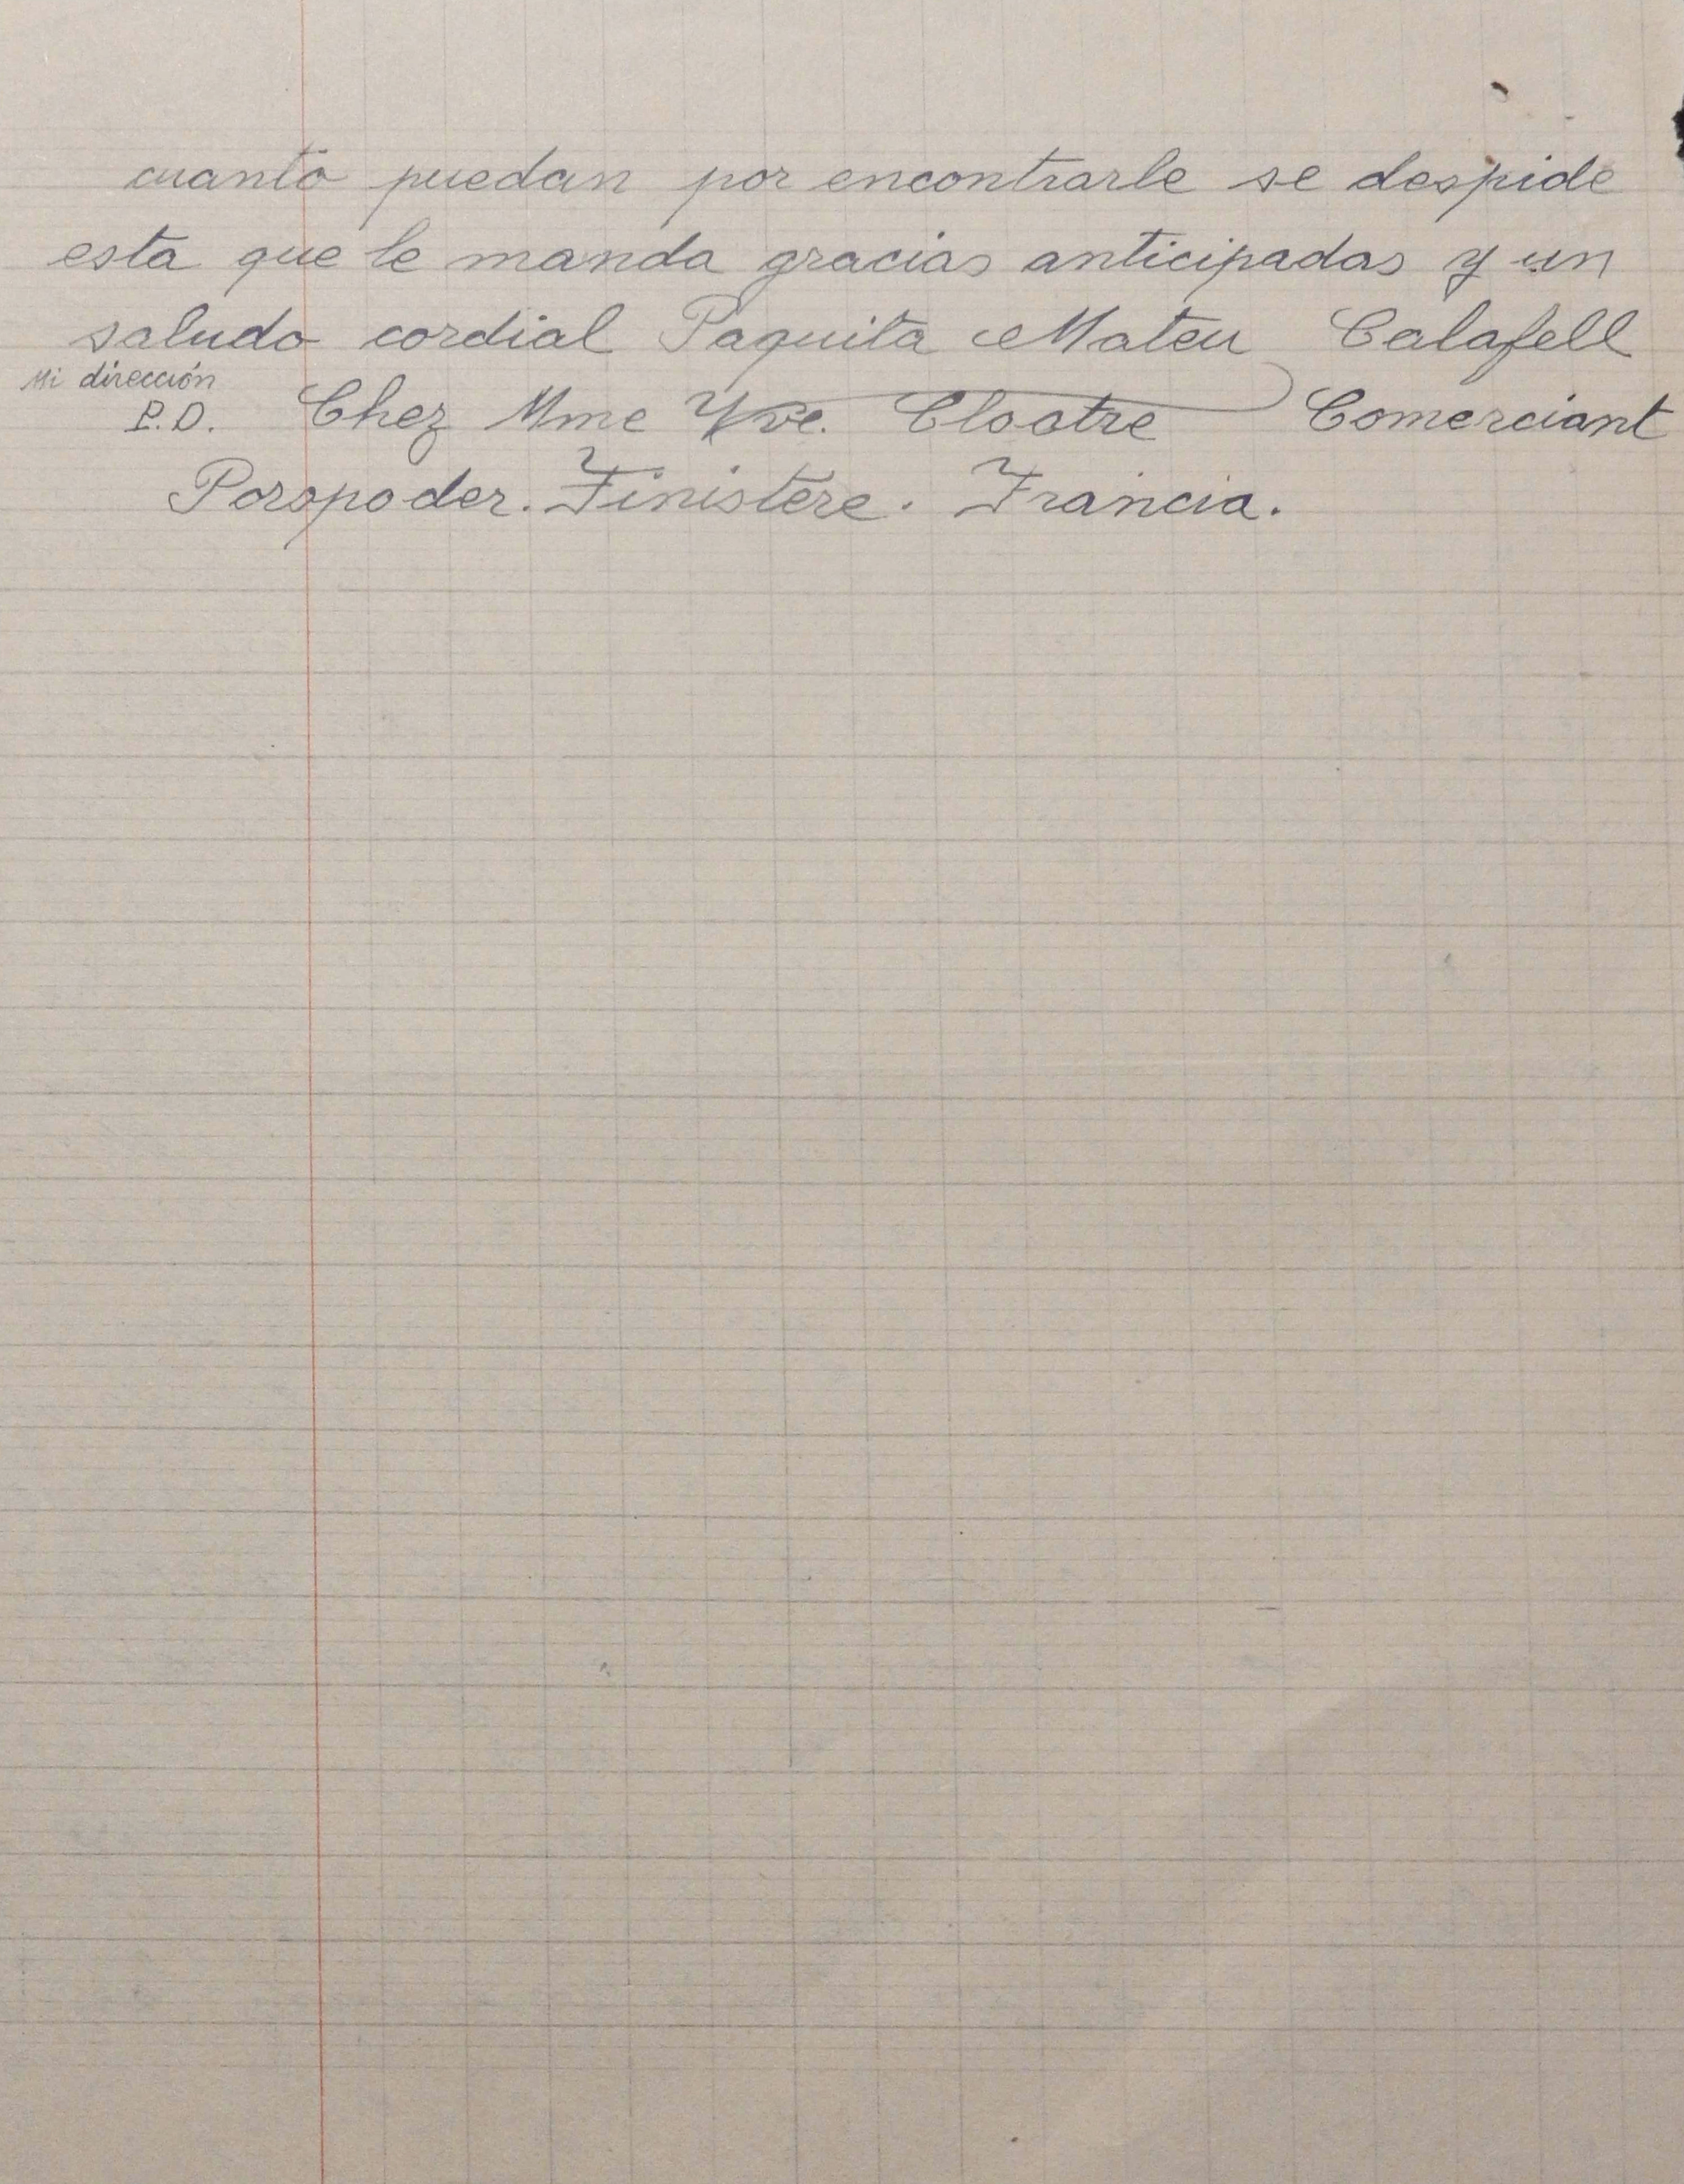 cuanto puedan por encontrarle se despide
esta que le manda gracias anticipadas y un
saludo cordial Paquita Mateu Calafell
Mi dirección
P.D. Chez Mme Yve. Cloatre Comerciant
Porspoder. Finistère. Francia.